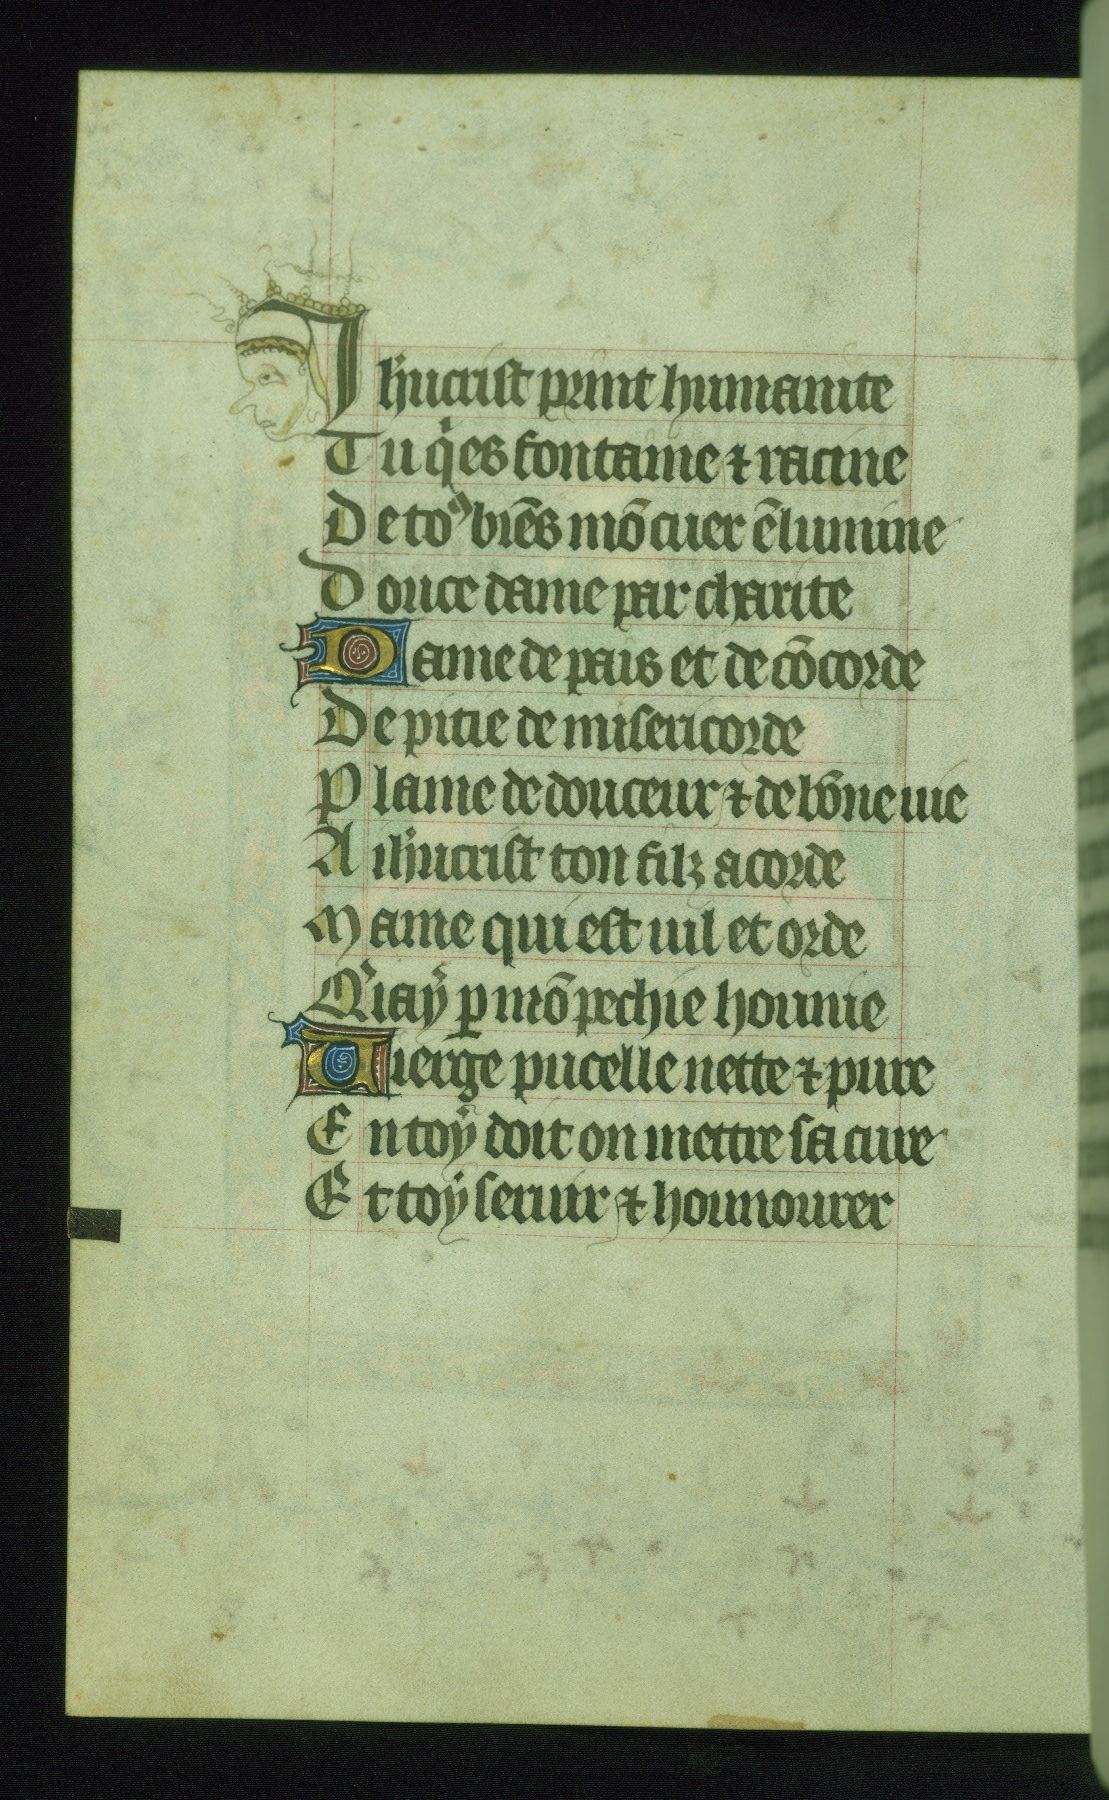 Ihūcrist print humanite
Tu qͥ es fontaine ⁊ racine
De toꝰ biēs mō cuer ēlumine
Douce dame par charite
Dame de pais et de cōcorde
De pitie de misericorde
Plaine de douceur ⁊ de bōne uie
A ihūcrist ton filz acorde
Mame qui est uil et orde
Qͥ iaÿ ꝑ mō pechie honnie
Uierge pucelle nette ⁊ pure
En toÿ doit on mettre sa cure
Et toÿ seruir ⁊ honnourer